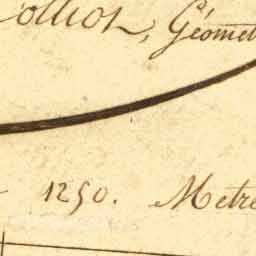 Colliot, Géomet
1250. Metre